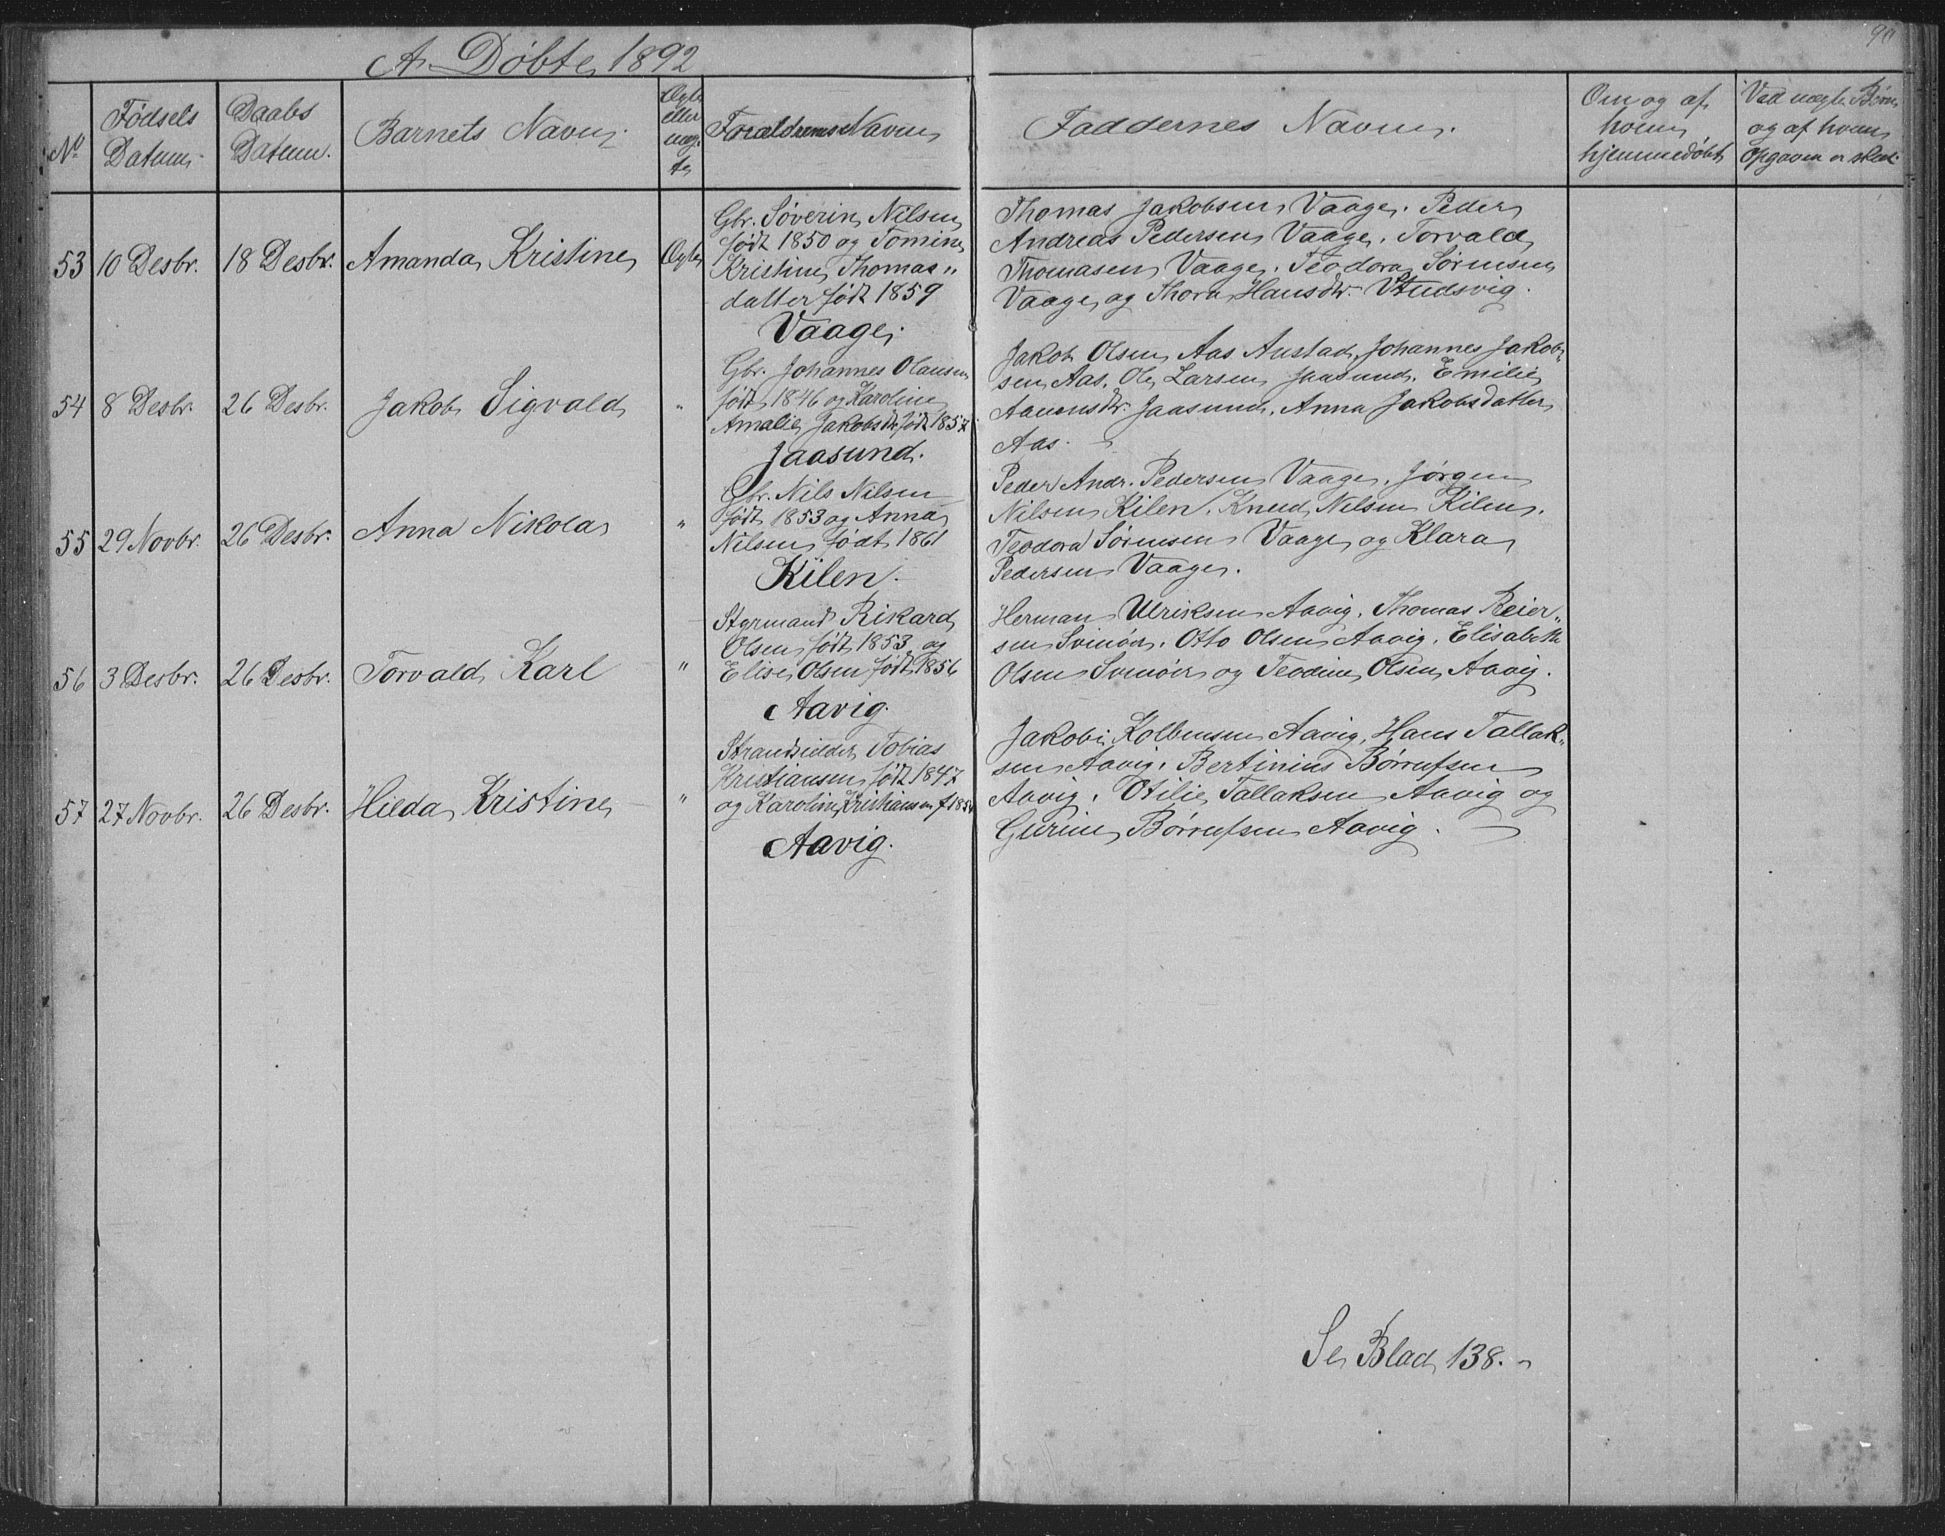 A. Døbte 1892
90
No
Fødsels
Datum.
Daabs
Datum.
Barnets Navn.
Ægte
eller
uæg-
te
Forældrenes Navn
Faddernes Navn.
Om og af
hvem
hjemmedøbt
Ved uægte Børn
og af hvem
Opgaven er skeet.
53 10 Desbr. 18 Desbr. Amanda Kristine Ægte
Gbr. Søverin Nilsen
født 1850 og Tomine
Kristine Thomas"
datter født 1859
Vaage.
Thomas Jakobsen Vaage. Peder
Andreas Pedersen Vaage. Torvald
Thomasen Vaage. Teodora Sørensen
Vaage og Thora Hansdtr. Udsvig.
54 8 Desbr. 26 Desbr. Jakob Sigvald "
Gbr. Johannes Olausen
født 1846 og Karoline
Amalie Jakobsdtr født 1857
Jaasund.
Jakob Olsen Aas Austad, Johannes Jakob"
sen Aas. Ole Larsen Jaasund. Emilie
Aanensdtr. Jaasund. Anna Jakobsdatter
Aas.
55 29 Novbr. 26 Desbr. Anna Nikola "
Gbr. Nils Nilsen
født 1853 og Anna
Nilsen født 1861
Kilen.
Peder Andr. Pedersen Vaage. Jørgen
Nilsen Kilen. Knud Nilsen Kilen.
Teodora Sørensen Vaage og Klara
Pedersen Vaage.
56 3 Desbr. 26 Desbr. Torvald Karl "
Styrmand Rikard
Olsen født 1853 og
Elise Olsen født 1856
Aavig.
Herman Ulriksen Aavig. Thomas Reier"
sen Svinøer. Otto Olsen Aavig. Elisabeth
Olsen Svinøer og Teodine Olsen Aavig.
57 27 Novbr. 26 Desbr. Hilda Kristine "
Strandsidder Tobias
Kristiansen født 1847
og Karoline Kristiansen f. 185
Aavig.
Jakobi Kolbensen Aavig, Hans Tallak"
sen Aavig. Bertinius Børrufsen
Aavig. Otilie Tallaksen Aavig og
Gurine Børrufsen Aavig.
Se Blad 138.